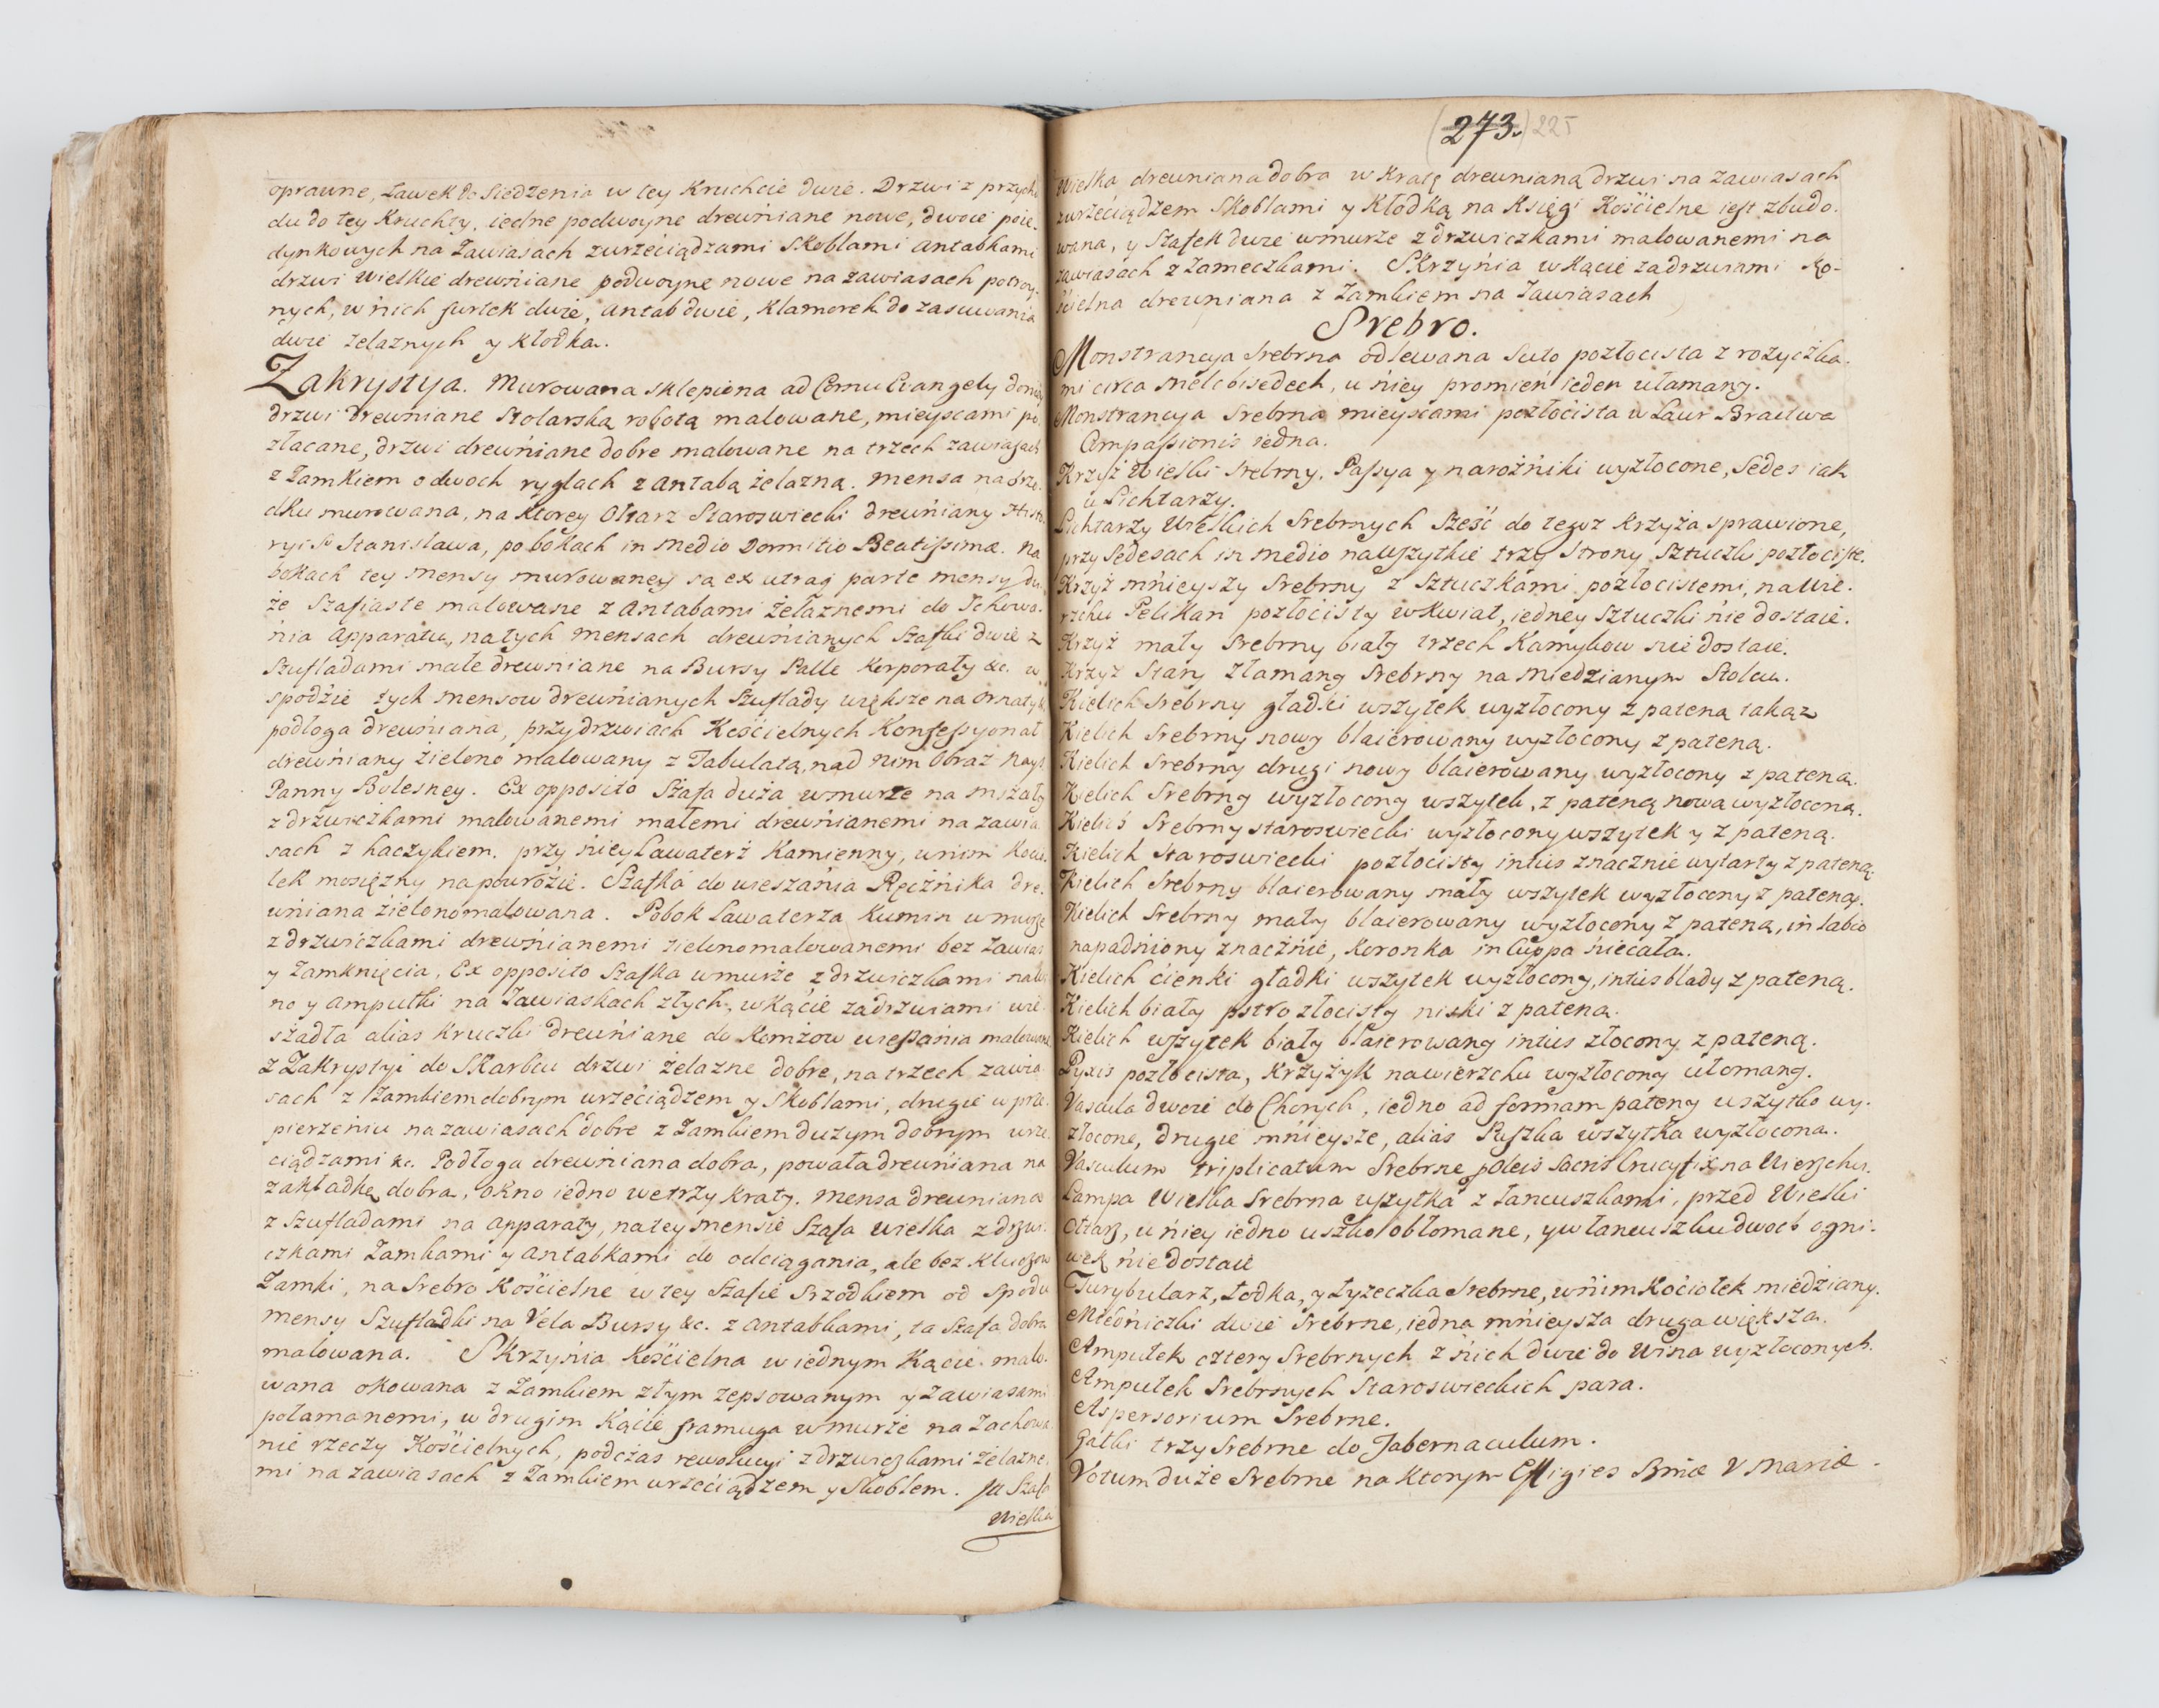 oprawne, Ławek do Siedzenia w tey Kruchcie dwie. Drzwi z przycho
du do tey Kruchty, iedne podwoyne drewniane nowe, dwoie poie
dynkowych na Zawiasach z wrzeciądzami Skoblami antabkami
drzwi Wielkie drewniane podwoyne nowe na zawiasach potroy-
nych, w nich furtek dwie, antab dwie, Klamorek do zasuwania
dwie żelaznych y kłodka.
Zakrystya. Murowana sklepiona ad Cornu Evangely do niey
drzwi drewniane Stolarską robotą malowane, mieyscami po
złacane, drzwi drewniane dobre malowane na trzech zawiasach
z Zamkiem o dwoch ryglach z antabą żelazną. Mensa na śrzo
dku murowana, na ktorey Ołtarz Staroswiecki drewniany Histo
ryi S. Stanisława, po bokach in medio Dormitio Beatissimæ. Na
bokach tey Mensy murowaney są ex utraq parte mensy du
że Szafiaste malowane z antabami żelaznemi do Schowa
nia apparatu, na tych mensach drewnianych Szafki dwie z
Szufladami małe drewniane na Bursy Palle Korporały &c. w
spodzie tych mensow drewnianych Szuflady większe na ornaty
podłoga drewniana, przy drzwiach Kościelnych Konfessyonał
drewniany zielono malowany z Tabulatą, nad nim Obraz Nays
Panny Bolesney. Ex opposito Szafa duża w murze na mszały
z drzwiczkami malowanemi małemi drewnianemi na zawia
sach z haczykiem. przy niey Lawaterz Kamienny, w nim Kocie
łek mosiężny na powrózie. Szafka do wieszania Ręcznika dre
wniana zielono malowana. Pobok Lawaterza Kumin w murze
z drzwiczkami drewnianemi zielono malowanemi bez Zawias
y Zamknięcia, Ex opposito Szafka w murze z drzwiczkami na wi
no y ampułki na Zawiaskach złych, w kącie za drzwiami wie
szadła alias kruczki drewniane do Komżow wieszania malowane
z Zakrystyi do Skarbcu drzwi żelazne dobre, na trzech zawia
sach z Zamkiem dobrym wrzeciądzem y Skoblami, drugie w prze
pierzeniu na zawiasach dobre z Zamkiem dużym dobrym wrze
ciądzami &c. Podłoga drewniana dobra, powała drewniana na
zakładkę dobra, okno iedno we trzy kraty. Mensa drewniana
z Szufladami na apparaty, na tey mensie Szafa wielka z drzwi
czkami Zamkami y antabkami do odciągania, ale bez kluczow
Zamki, na Srebro Kościelne w tey Szafie Srzodkiem od Spodu
mensy Szufladki na Vela Bursy &c. z antabkami, ta Szafa dobra
malowana. Skrzynia Kościelna w iednym Kącie malo-
wana okowana z Zamkiem złym zepsowanym y Zawiasami
połamanemi, w drugim Kącie framuga w murze na Zachowa
nie rzeczy Kościelnych, podczas rewolucyi z drzwiczkami żelazne
mi na zawiasach z Zamkiem wrzeciądzem y Skoblem. Szafa
Wielka
273. 225
Wielka drewniana dobra w kratę drewnianą drzwi na zawiasach
z wrzeciądzem Skoblami y Kłodką na Księgi Kościelne iest zbudo-
wana, y Szafek dwie w murze z drzwiczkami malowanemi na
zawiasach z Zameczkami. Skrzynia w Kącie za drzwiami Ko-
ścielna drewniana z Zamkiem na Zawiasach
Srebro.
Monstrancya Srebrna odlewana Suto pozłocista z rożyczka-
mi circa Melchisedech, u niey promień ieden ułamany.
Monstrancya Srebrna mieyscami pozłocista w Laur Bractwa
Compassionis iedna.
Krzyż Wielki Srebrny, Passya y narożniki wyzłocone, Sedes iak
u Lichtarzy.
Lichtarzy Wielkich Srebrnych Sześć do tegoż Krzyża sprawione,
przy Sedesach in medio na wszytkie trzy Strony Sztuczki pozłociste.
Krzyż mnieyszy Srebrny z Sztuczkami pozłocistemi, na wie-
rzchu Pelikan pozłocisty w kwiat, iedney Sztuczki nie dostaie.
Krzyż mały Srebrny biały trzech Kamykow nie dostaie.
Krzyż Stary Złamany Srebrny na Miedzianym Stolcu.
Kielich Srebrny gładki wszytek wyzłocony z pateną takąż
Kielich Srebrny nowy blaierowany wyzłocony z pateną.
Kielich Srebrny drugi nowy blaierowany wyzłocony z pateną.
Kielich Srebrny wyzłocony wszytek, z pateną nową wyzłoconą.
Kielich Srebrny staroswiecki wyzłocony wszytek y z pateną.
Kielich Staroswiecki pozłocisty intus znacznie wytarty z pateną.
Kielich Srebrny blaierowany mały wszytek wyzłocony z pateną.
Kielich Srebrny mały blaierowany wyzłocony z pateną, in labio
napadniony znacznie, Koronka in Cuppa niecała.
Kielich cienki gładki wszytek wyzłocony, intus blady z pateną.
Kielich biały pstro złocisty niski z pateną.
Kielich wszytek biały blaierowany intus złocony z pateną.
Pyxis pozłocista, Krzyżyk na wierzchu wyzłocony ułomany.
Vascula dwoie do Chorych, iedno ad formam pateny wszytko wy-
złocone, drugie mnieysze, alias Puszka wszytka wyzłocona.
Vasculum triplicatum Srebrne pOleis Sacris Crucyfix na Wierzchu.
Lampa Wielka Srebrna wszytka z łancuszkami, przed Wielki
Ołtarz, u niey iedno uszko obłomane, y w łancuszku dwoch ogni-
wek nie dostaie
Turybularz, Łodka, y Łyżeczka Srebrne, w nim Kociołek miedziany.
Miedniczki dwie Srebrne, iedna mnieysza druga większa.
Ampułek cztery Srebrnych z nich dwie do Wina wyzłoconych.
Ampułek Srebrnych Staroswieckich para.
Aspersorium Srebrne.
Gałki trzy Srebrne do Tabernaculum.
Votum duże Srebrne na ktorym Effigies Bmæ V Mariæ